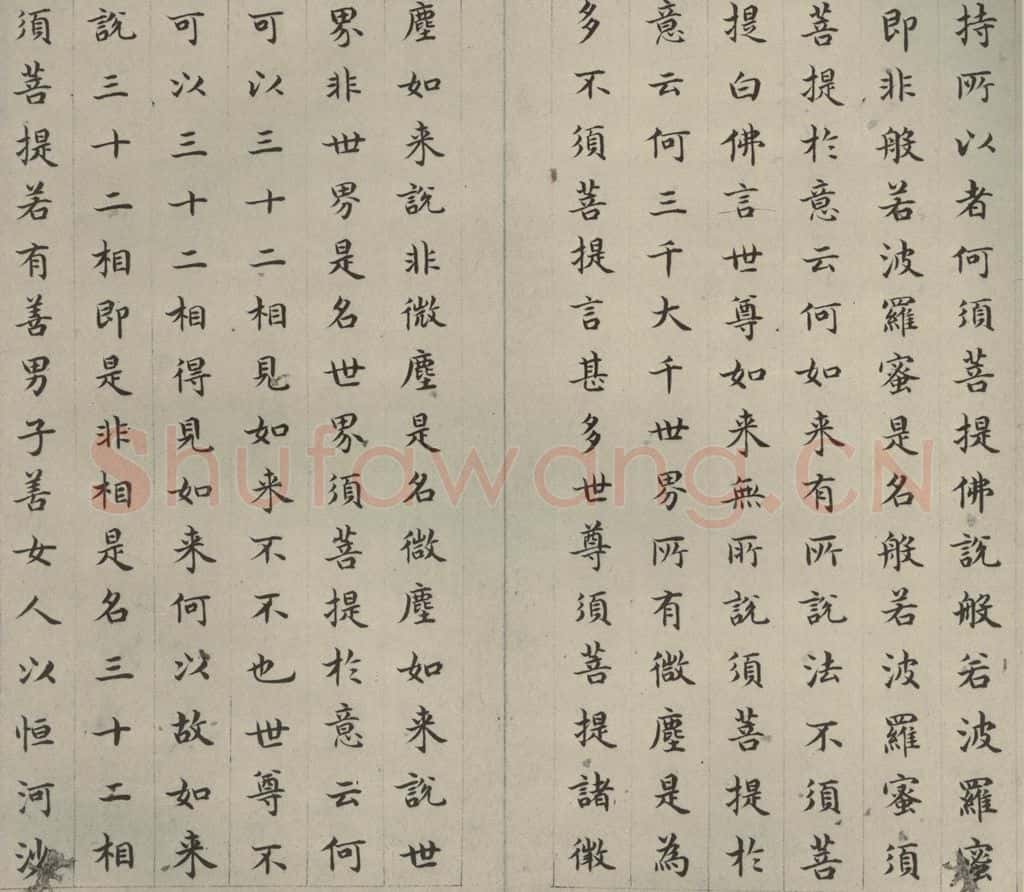 持所以者何須菩提佛說般若波羅蜜
即非般若波羅蜜是名般若波羅蜜須
菩提於意云何如来有所說法不須菩
提白佛言世尊如来無所說須菩提於
意云何三千大千世界所有微塵是為
多不須菩提言甚多世尊須菩提諸微
塵如来說非微塵是名微塵如来說世
界非世界是名世界須菩提於意云何
可以三十二相見如来不不也世尊不
可以三十二相得見如来何以故如来
說三十二相即是非相是名三十二相
須菩提若有善男子善女人以恒河沙
Shufawang.CN